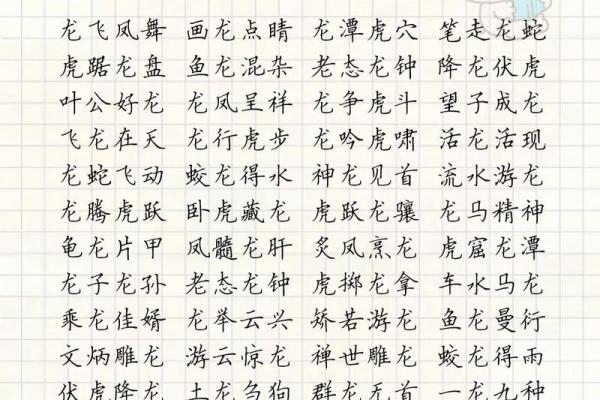 龙飞凤舞 画龙点睛 龙潭虎穴 笔走龙蛇
虎踞龙盘 鱼龙混杂 老态龙钟 降龙伏虎
叶公好龙 龙凤呈祥 龙争虎斗 望子成龙
飞龙在天 龙行虎步 龙吟虎啸 活龙活现
龙蛇飞动 蛟龙得水 神龙见首 流水游龙
龙腾虎跃 卧虎藏龙 虎跃龙骧 龙马精神
龟龙片甲 凤髓龙肝 炙凤烹龙 虎窟龙潭
龙子龙孙 老态龙钟 虎掷龙拿 车水马龙
乘龙佳婿 龙举云兴 矫若游龙 鱼龙曼衍
文炳雕龙 游云惊龙 禅世雕龙 蛟龙得雨
伏虎降龙 土龙刍狗 群龙无首 一龙九种